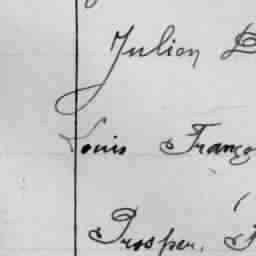 Julien
Louis Franço
Prosper,